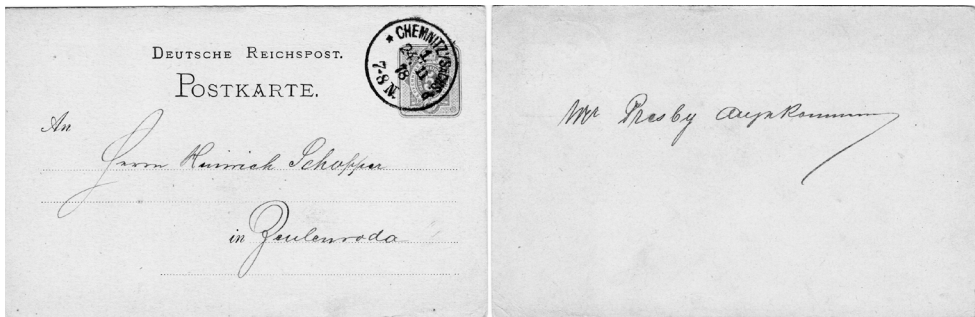 DEUTSCHE REICHSPOST.
POSTKARTE.
* CHEMNITZ
24 11
78
7-8 N.
An
Herrn Heinrich Schopper
in Zeulenroda
Mr Presby angekommen